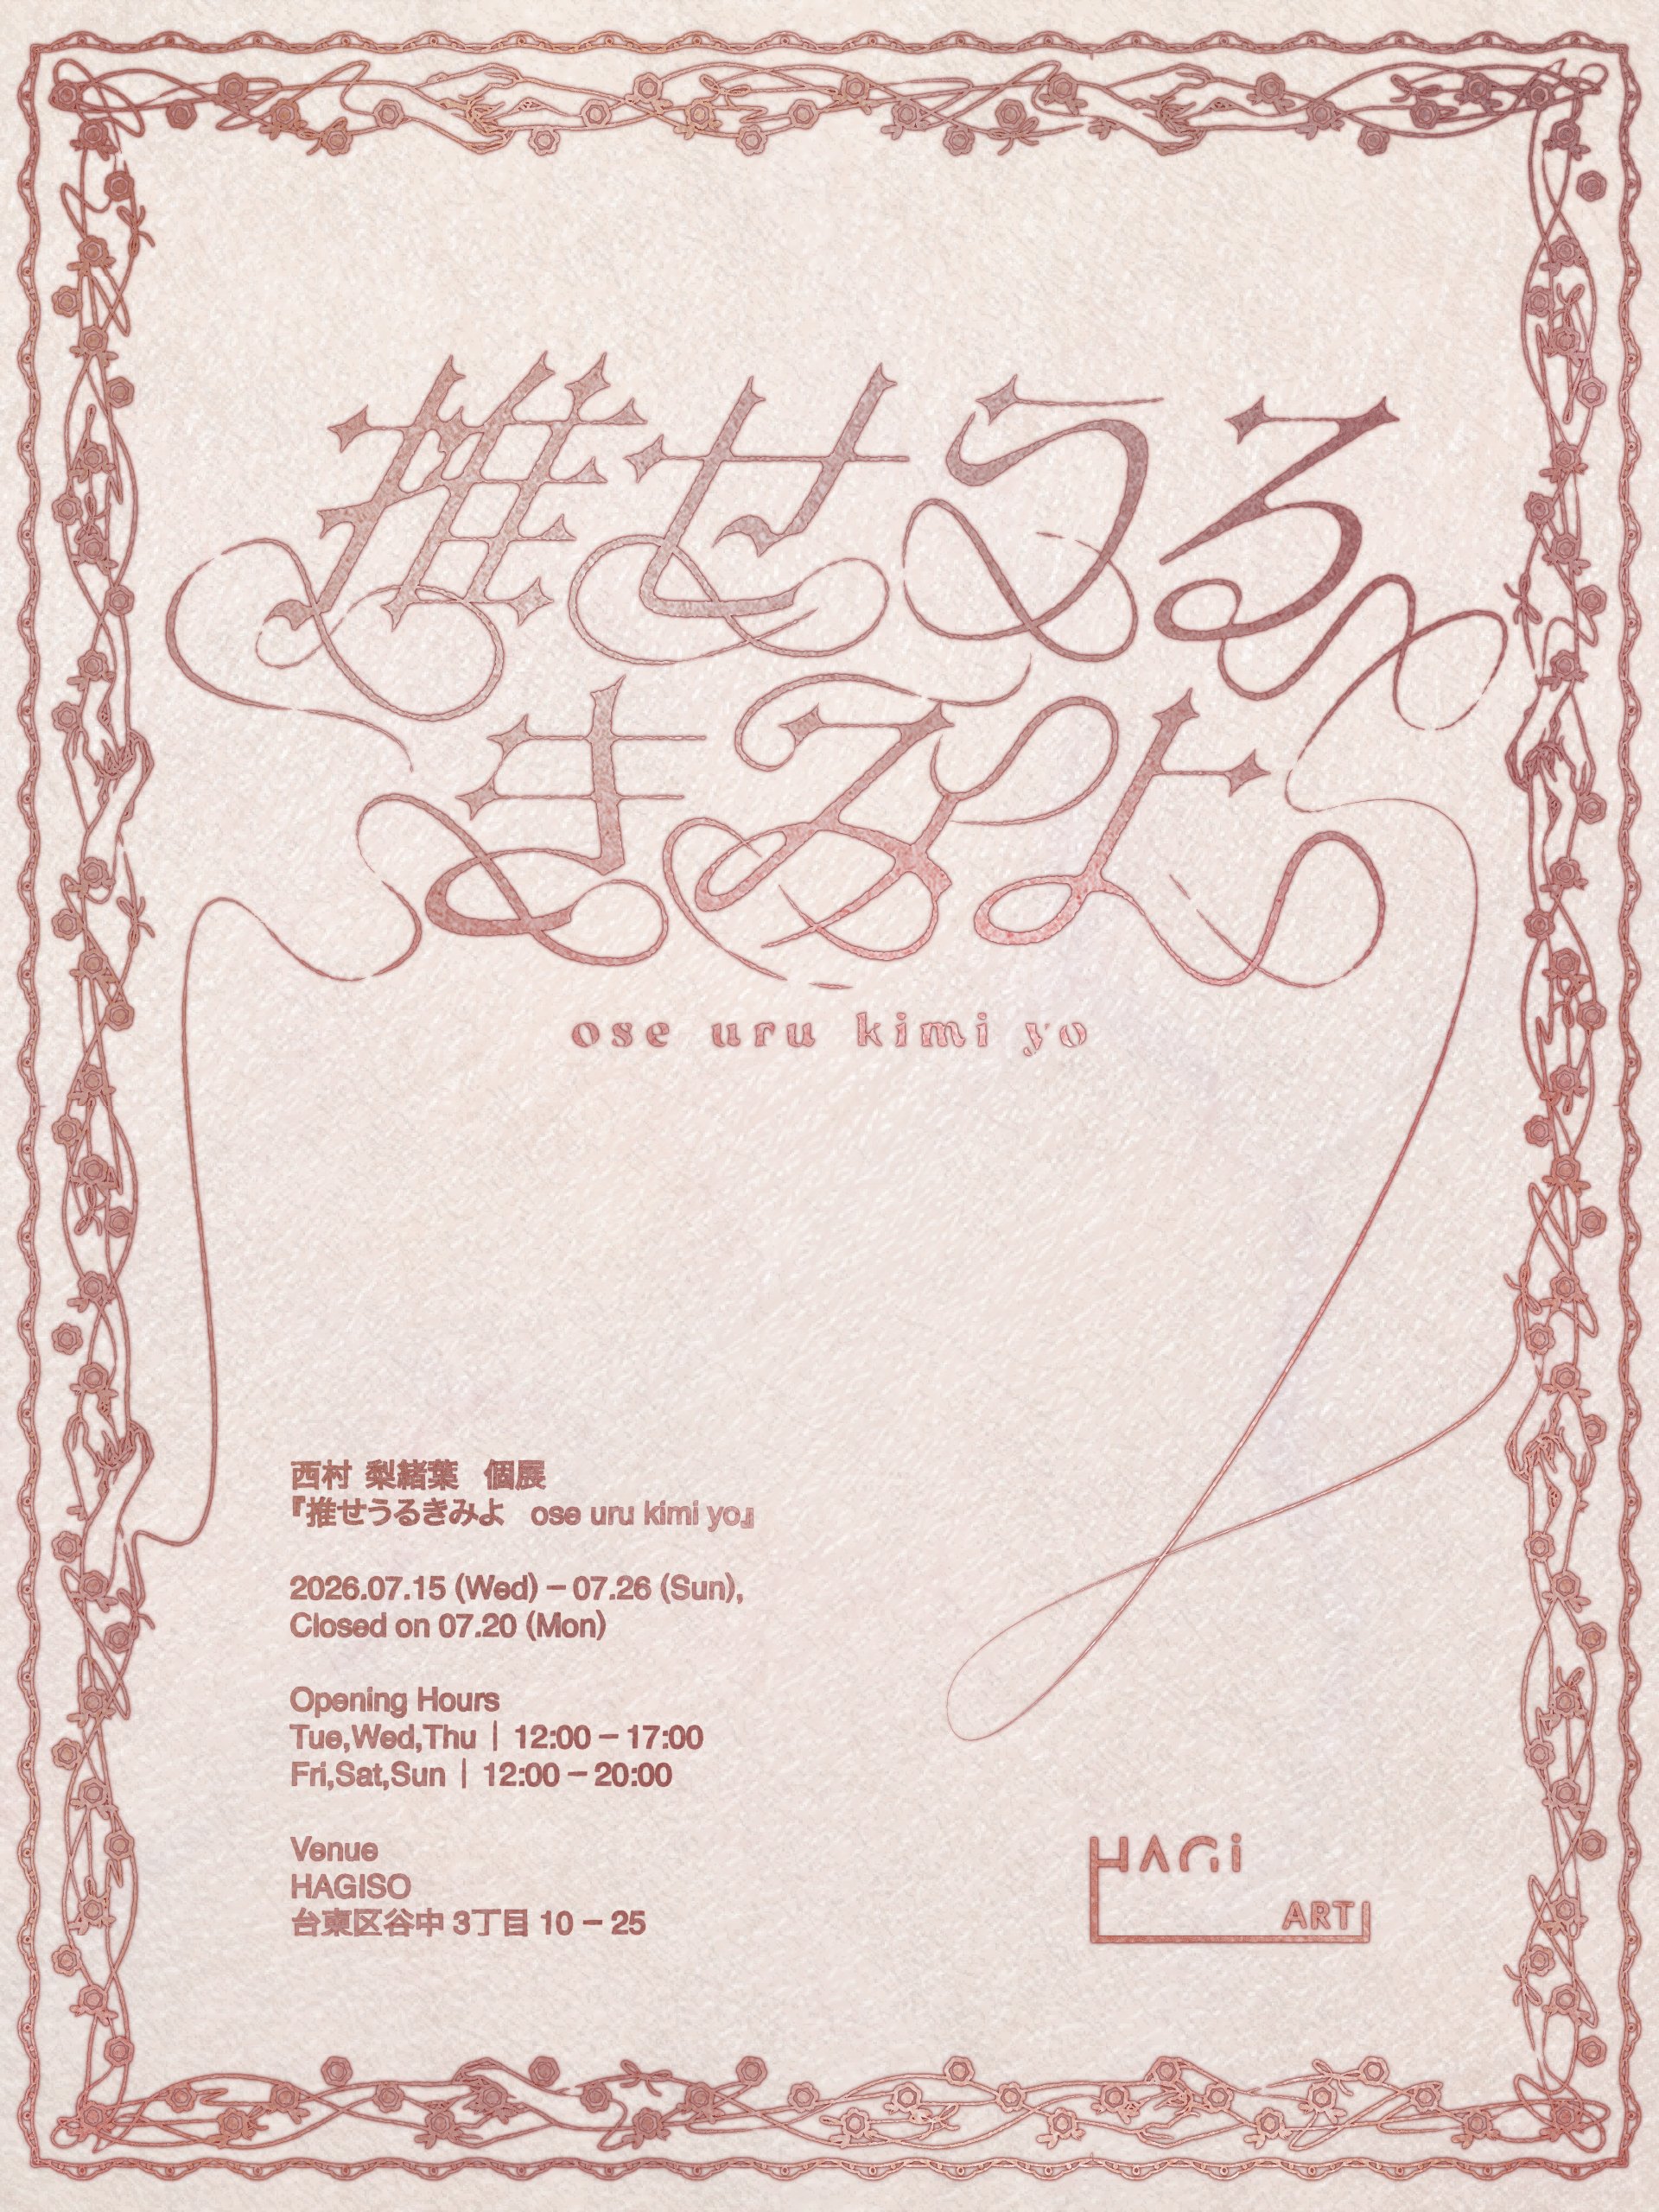 推せうる
きみよ
ose uru kimi yo
西村 梨緒葉 個展
『推せうるきみよ ose uru kimi yo』
2026.07.15 (Wed) – 07.26 (Sun),
Closed on 07.20 (Mon)
Opening Hours
Tue,Wed,Thu | 12:00 – 17:00
Fri,Sat,Sun | 12:00 – 20:00
Venue
HAGISO
台東区谷中 3丁目 10 – 25
HAGi
ART